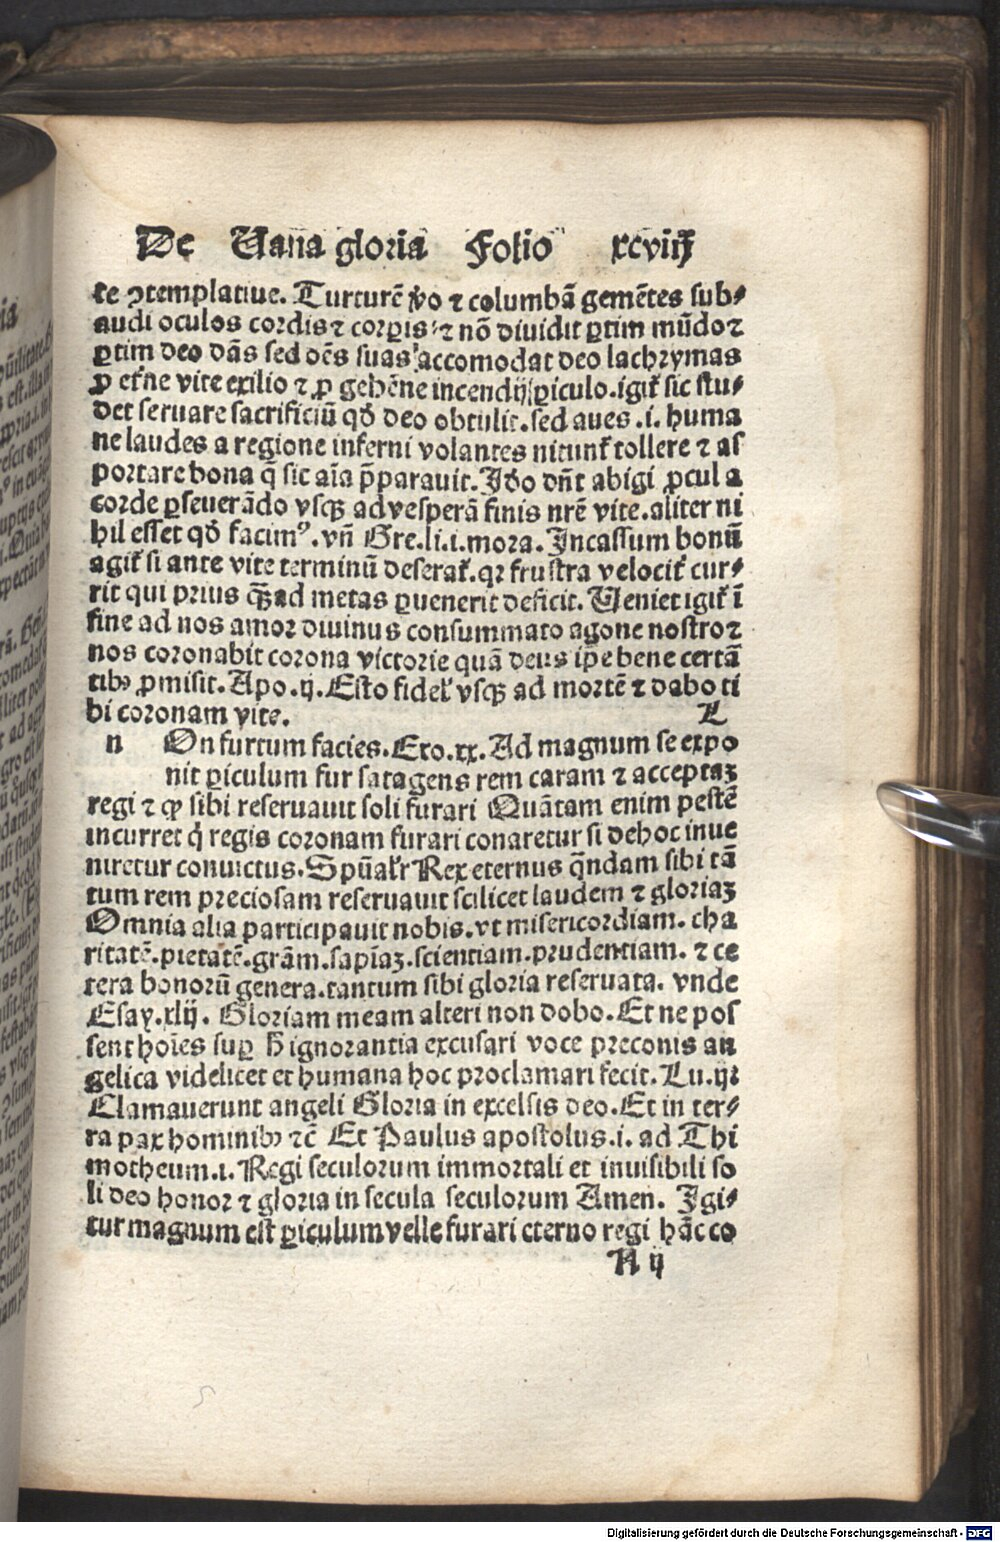 De Uana gloria Folio xcviij
te ꝯtemplatiue. Turturē ꝟo ⁊ columbā gemētes sub⸗
audi oculos cordis ⁊ corꝑis ⁊ nō diuidit ꝑtim mūdo ⁊
ꝑtim deo dās sed oēs suas accomodat deo lachrymas
ꝓ et̄ne vite exilio ⁊ ꝓ gehēne incendij ꝑiculo. igit̄ sic stu⸗
det seruare sacrificiū qđ deo obtulit. sed aues .i. huma
ne laudes a regione inferni volantes nitunt̄ tollere ⁊ as
portare bona q̄ sic aīa p̄parauit. Iđo dn̄t abigi ꝓcul a
corde ꝑseuerādo vsqꝫ ad vesperā finis nrē vite. aliter ni
hil esset qđ facimꝰ. vn̄ Gre. li. i. mora. Incassum bonū
agit̄ si ante vite terminū deserat̄. qꝛ frustra velocit̄ cur⸗
rit qui prius qꝫ ad metas ꝑuenerit deficit. Ueniet igit̄ ī
fine ad nos amor diuinus consummato agone nostro ⁊
nos coronabit corona victorie quā deus ip̄e bene certā
tibꝫ ꝓmisit. Apo. ij. Esto fidel̄ vsqꝫ ad mortē ⁊ dabo ti
bi coronam vite. L
n On furtum facies. Exo. xx. Ad magnum se expo
nit ꝑiculum fur satagens rem caram ⁊ acceptaꝫ
regi ⁊ qꝙ sibi reseruauit soli furari Quātam enim pestē
incurret q̄ regis coronam furari conaretur si de hoc inue
niretur conuictus. Spūal̄r Rex eternus q̄ndam sibi tā
tum rem preciosam reseruauit scilicet laudem ⁊ gloriaꝫ
Omnia alia participauit nobis. vt misericordiam. cha
ritatē. pietatē. grām. sapīaꝫ. scientiam. prudentiam. ⁊ ce
tera bonorū genera. tantum sibi gloria reseruata. vnde
Esay. xlij. Gloriam meam alteri non dobo. Et ne pos
sent hoīes suꝑ ħ ignorantia excusari voce preconis an
gelica videlicet et humana hoc proclamari fecit. Lu. ij⁊
Clamauerunt angeli Gloria in excelsis deo. Et in ter⸗
ra pax hominibꝫ ⁊c̄ Et Paulus apostolus .i. ad Thi
motheum. i. Regi seculorum immortali et inuisibili so
li deo honor ⁊ gloria in secula seculorum Amen. Igi⸗
tur magnum est ꝑiculum velle furari eterno regi hāc co
N ij
Digitalisierung gefördert durch die Deutsche Forschungsgemeinschaft - DFG